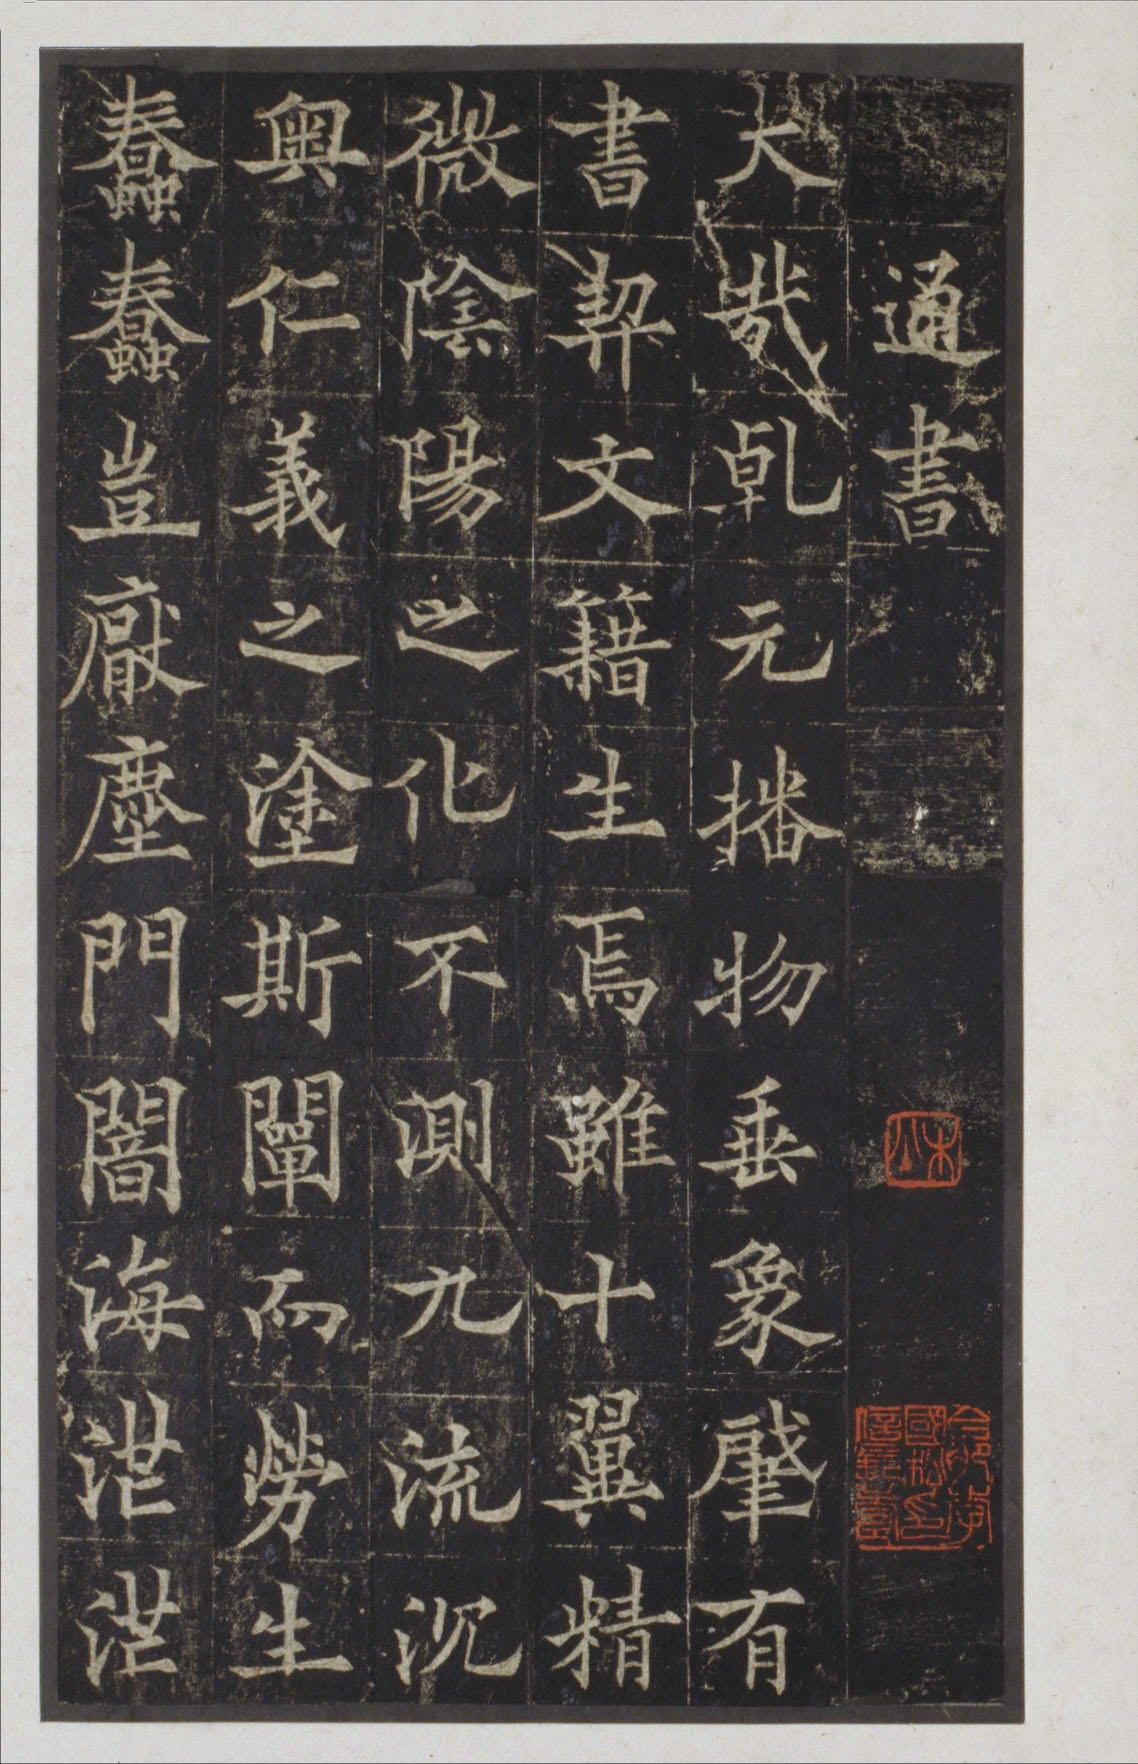 通書
大哉乹元播物垂象肈有
書契文籍生焉雖十翼精
微陰陽之化不測九流沉
奥仁義之塗斯闡而勞生
蠢蠢豈厭塵門闇海茫茫